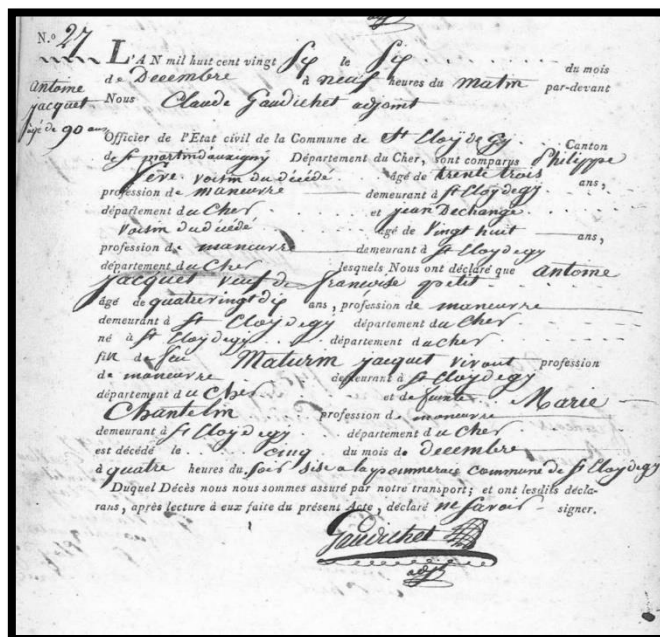 N.o 27
antoine
jacquet
agé de 90 ans
L'AN mil huit cent vingt Six le Six du mois
de Decembre à neuf heures du matin par-devant
Nous Claude Gaudichet adjoint
Officier de l'Etat civil de la Commune de St Eloy de Gy Canton
de St martin d'auxigny Département du Cher, sont comparus Philippe
voisin du décédé âgé de trente trois ans,
profession de maneuvre demeurant à St Eloy de gy
département du Cher et jean Dechange
voisin du décédé âgé de vingt huit ans,
profession de maneuvre demeurant à St Eloy de gy
département du Cher lesquels Nous ont déclaré que antoine
jacquet veuf de françoise
âgé de quatre vingt dix ans, profession de maneuvre
demeurant à St Eloy de gy département du Cher
né à St Eloy de gy département du cher
fils de feu Maturin jacquet vivant profession
de maneuvre demeurant à St Eloy de gy
département du Cher et de funte Marie
Chantelin profession de maneuvre
demeurant à St Eloy de gy département du Cher
est décédé le cinq du mois de decembre
à quatre heures du soir sise a la pommerais commune de St Eloy de gy
Duquel Décès nous nous sommes assuré par notre transport; et ont lesdits décla-
rans, après lecture à eux faite du présent Acte, déclaré ne savoir signer.
Gaudichet
adjt